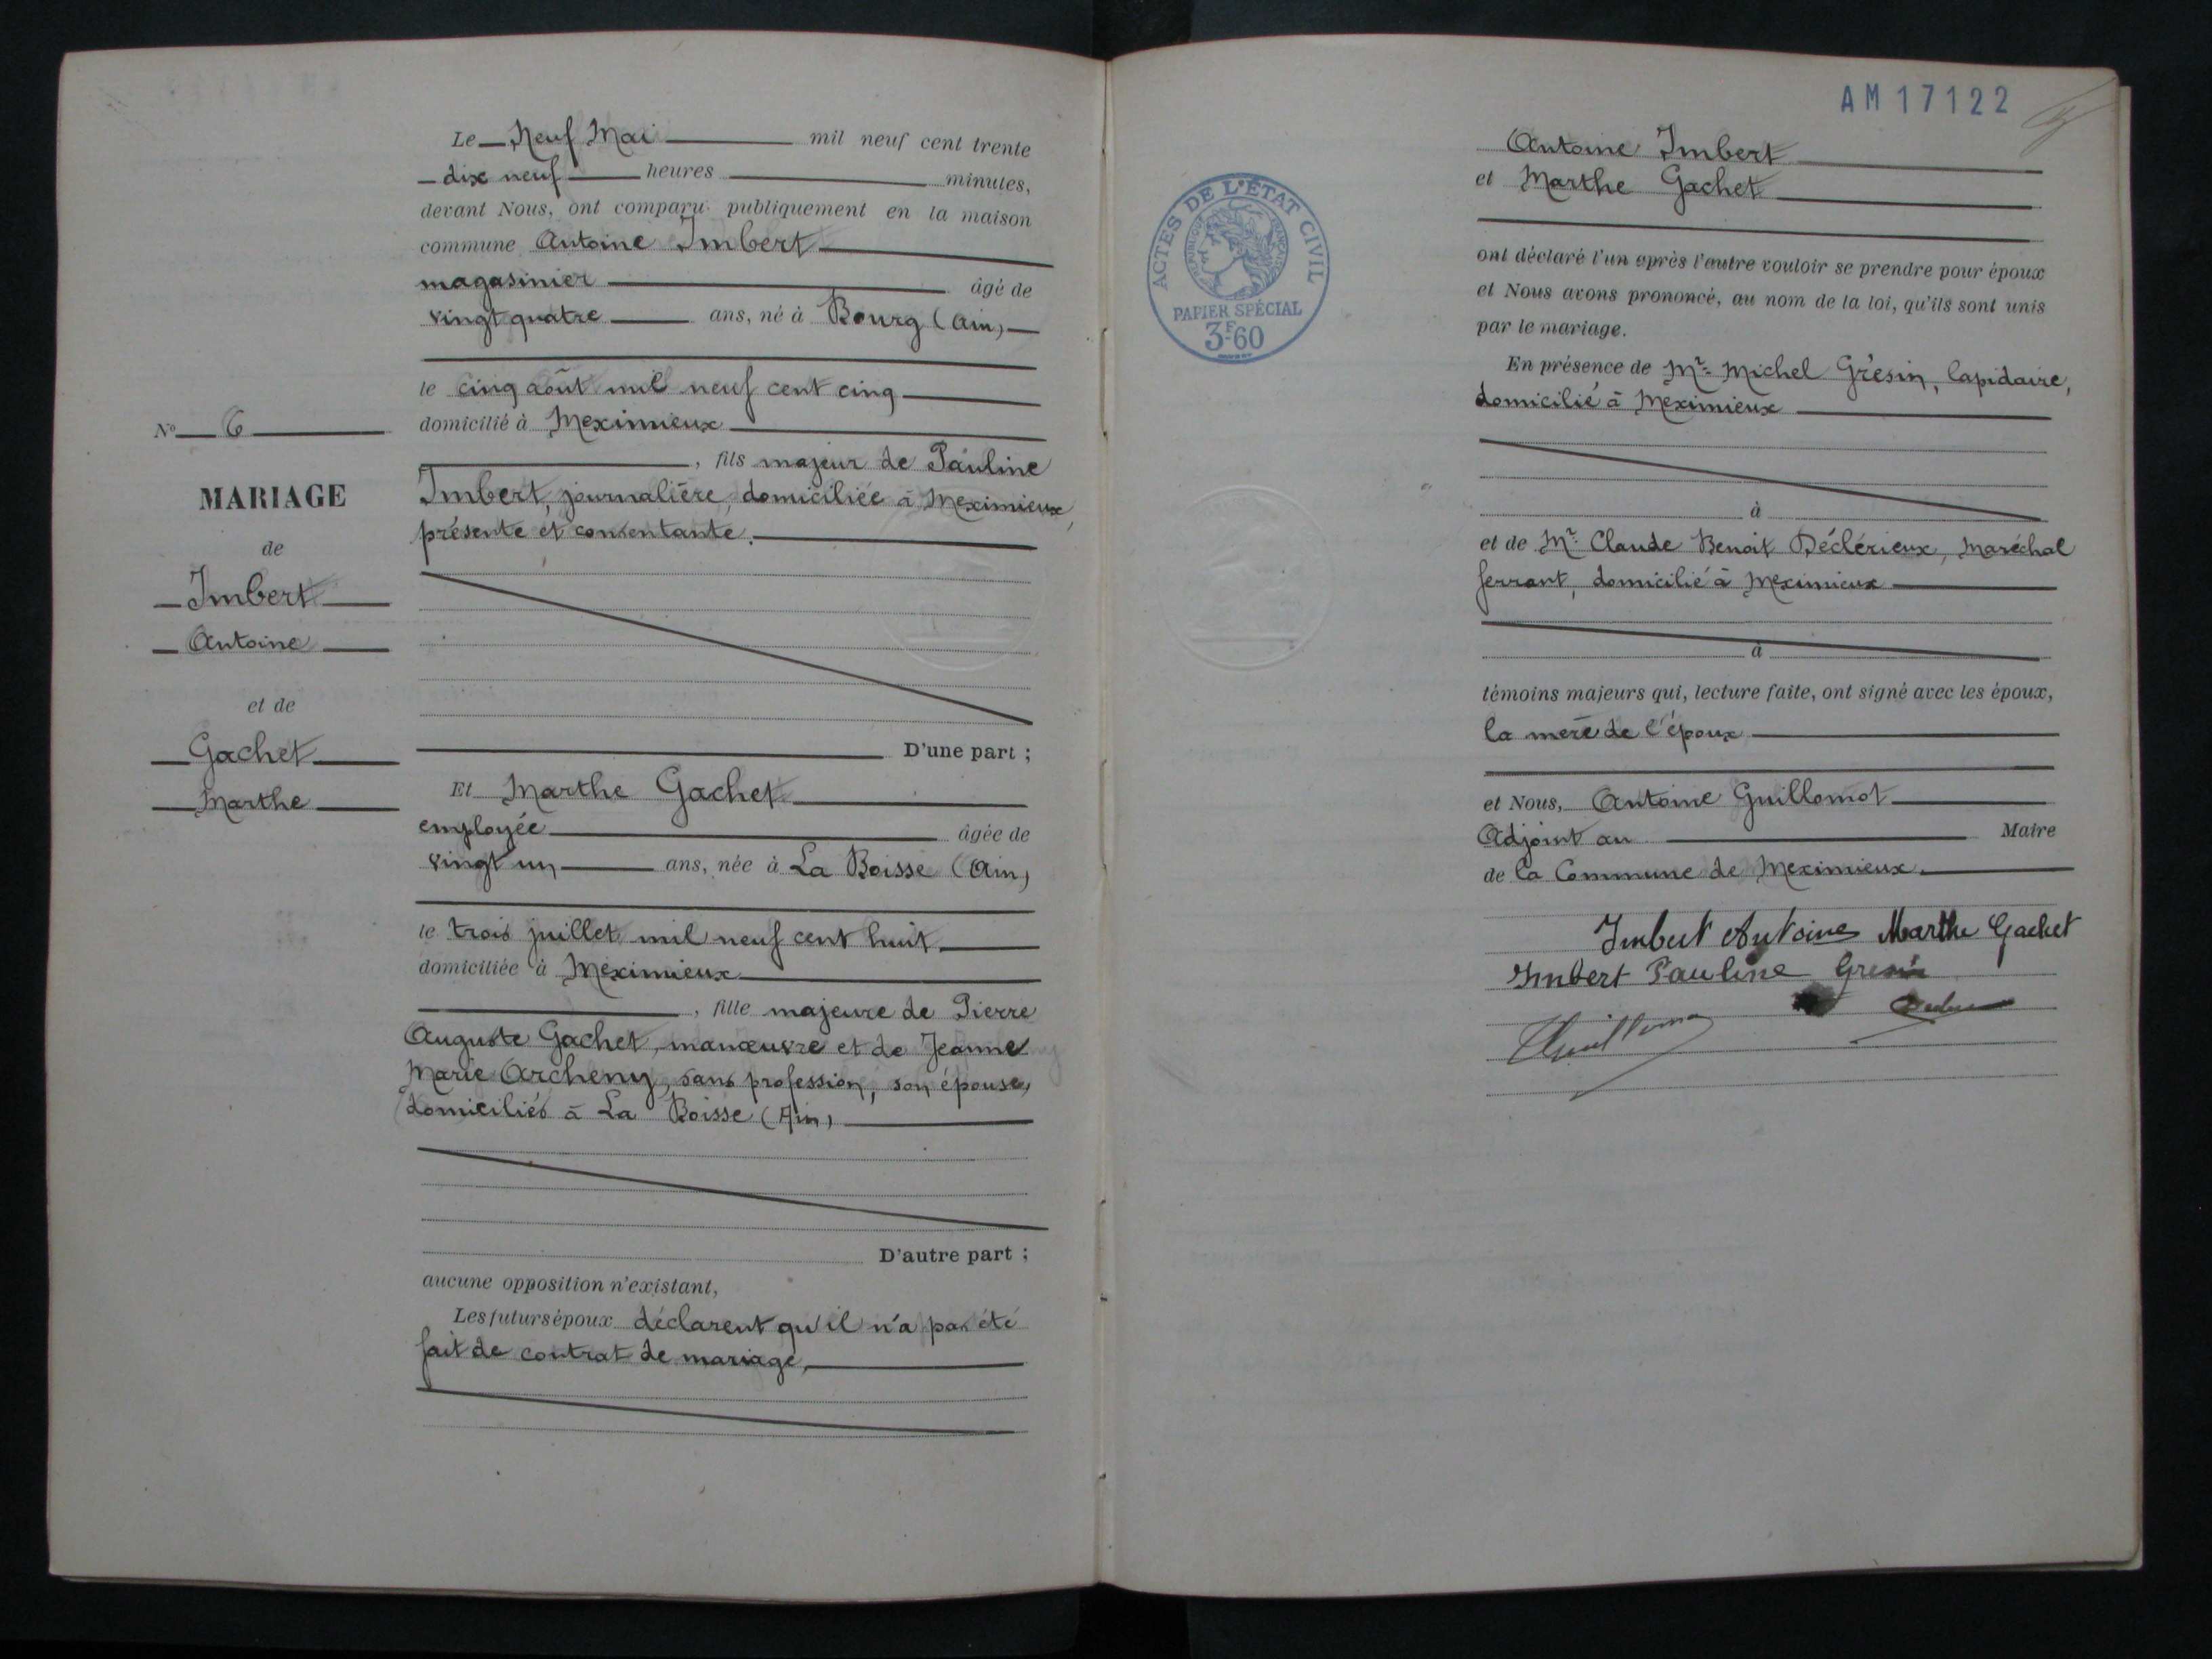 Le Neuf Mai mil neuf cent trente
dix neuf heures minutes,
devant Nous, ont comparu publiquement en la maison
commune Antoine Imbert
magasinier âgé de
vingt quatre ans, né à Bourg (Ain)
le cinq août mil neuf cent cinq
domicilié à Meximieux
, fils majeur de Pauline
Imbert, journalière, domiciliée à Meximieux,
présente et consentante.
D'une part ;
Et Marthe Gachet
employée âgée de
vingt un ans, née à La Boisse (Ain)
le trois juillet mil neuf cent huit
domiciliée à Meximieux
, fille majeure de Pierre
Auguste Gachet, manœuvre et de Jeanne
Marie Archeny, sans profession, son épouse,
domiciliés à La Boisse (Ain)
D'autre part ;
aucune opposition n'existant,
Les futurs époux déclarent qu'il n'a pas été
fait de contrat de mariage,
N° 6
MARIAGE
de
Imbert
Antoine
et de
Gachet
Marthe
AM 17122
ACTES DE L'ÉTAT CIVIL
RÉPUBLIQUE FRANÇAISE
PAPIER SPÉCIAL
3F60
Antoine Imbert
et Marthe Gachet
ont déclaré l'un après l'autre vouloir se prendre pour époux
et Nous avons prononcé, au nom de la loi, qu'ils sont unis
par le mariage.
En présence de Mr Michel Grésin, lapidaire,
domicilié à Meximieux
à
et de Mr Claude Benoit Déclérieux, Maréchal
ferrant, domicilié à Meximieux
à
témoins majeurs qui, lecture faite, ont signé avec les époux,
la mère de l'époux
et Nous, Antoine Guillomot
Adjoint au Maire
de la Commune de Meximieux.
Imbert Antoine Marthe Gachet
Imbert Pauline Gresin